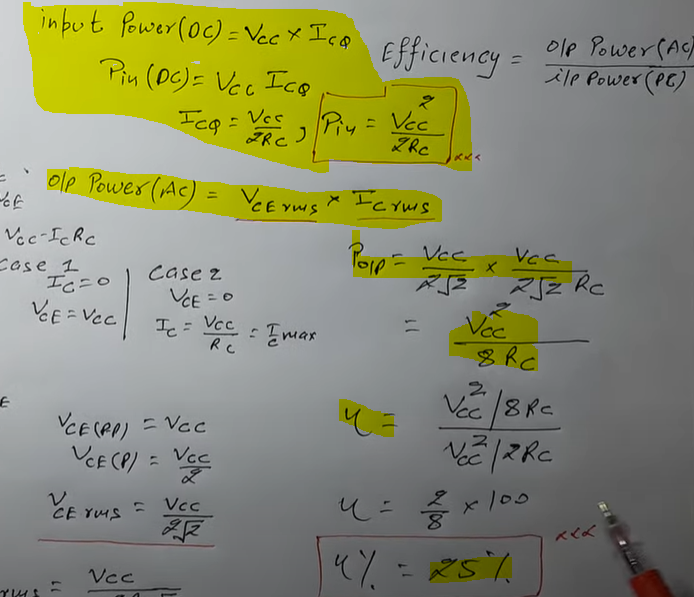 input Power(DC) = Vcc × ICQ
Pin (DC) = Vcc ICQ
ICQ = Vcc/2Rc , Pin = Vcc²/2Rc
Efficiency = o/p Power(AC)/i/p Power(DC)
o/p Power(AC) = VCE rms × IC rms
VCE
Vcc - IcRc
Case 1
Ic = 0
VCE = Vcc
Case 2
VCE = 0
Ic = Vcc/Rc = Ic max
Po/p = Vcc/2√2 × Vcc/2√2 Rc
= Vcc²/8Rc
VCE(PP) = Vcc
VCE(P) = Vcc/2
VCE rms = Vcc/2√2
rms = Vcc
η = Vcc²/8Rc / Vcc²/2Rc
η = 2/8 × 100
η% = 25%